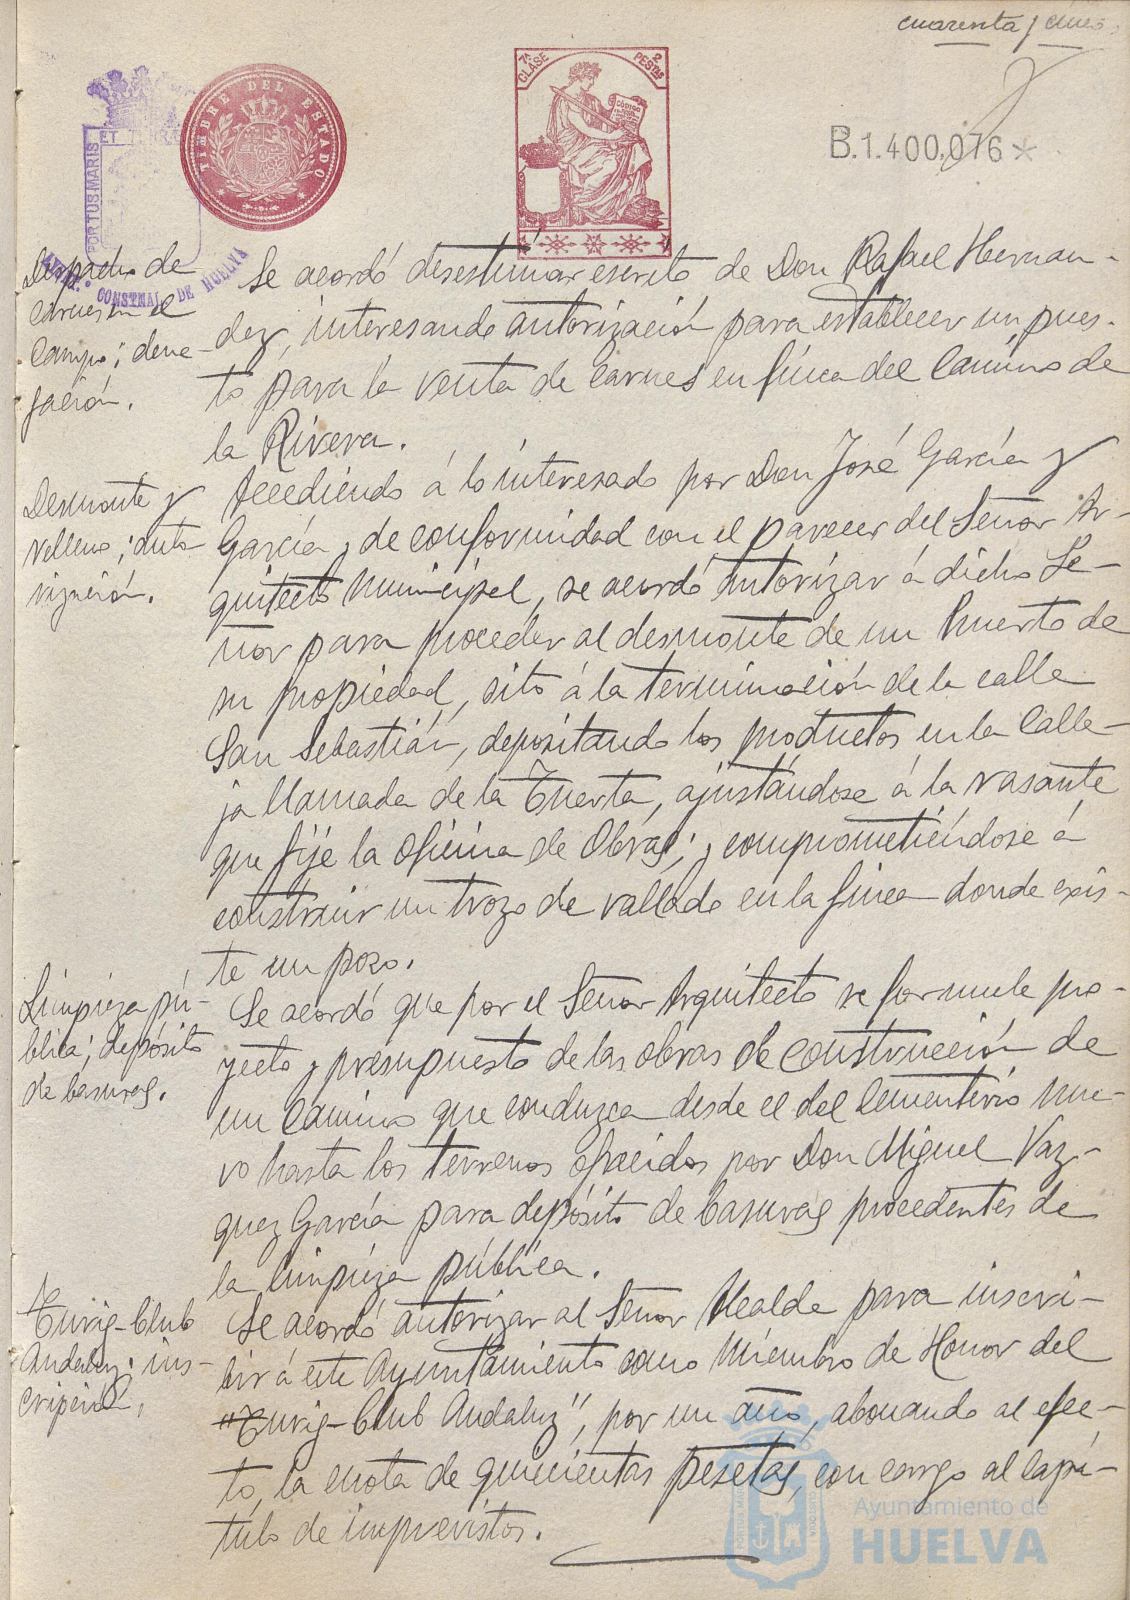 cuarenta y cinco
7ª CLASE
2 PESTAS
CÓDIGO
TIMBRE DEL ESTADO
PORTUS MARIS
ET TERRÆ
CONSTNAL. DE HUELVA
B.1.400,076*
Despacho de
carnes en el
campo; dene-
gación.
Se acordó desestimar escrito de Don Rafael Hernan-
dez, interesando autorización para establecer un pues-
to para la venta de carnes en finca del Camino de
la Rivera.
Desmonte y
relleno; auto-
rización.
Accediendo á lo interesado por Don José García y
García y de conformidad con el parecer del Señor Ar-
quitecto Municipal, se acordó autorizar á dicho Se-
ñor para proceder al desmonte de un huerto de
su propiedad, sito á la terminación de la calle
San Sebastián, depositando los productos en la Calle-
ja llamada de la Tuerta, ajustándose á la rasante
que fije la oficina de Obras; y comprometiéndose á
construir un trozo de vallado en la finca donde exis-
te un pozo.
Limpieza pú-
blica; depósito
de basuras.
Se acordó que por el Señor Arquitecto se formule pro-
yecto y presupuesto de las obras de construcción de
un camino que conduzca desde el del Cementerio nue-
vo hasta los terrenos ofrecidos por Don Miguel Vaz-
quez García para depósito de basuras procedentes de
la limpieza pública.
Turig-Club
Andaluz; ins-
cripción.
Se acordó autorizar al Señor Alcalde para inscri-
bir á este Ayuntamiento como Miembro de Honor del
"Turig-Club Andaluz", por un año, abonando al efec-
to, la cuota de quinientas pesetas, con cargo al capí-
tulo de imprevistos.
Ayuntamiento de
HUELVA